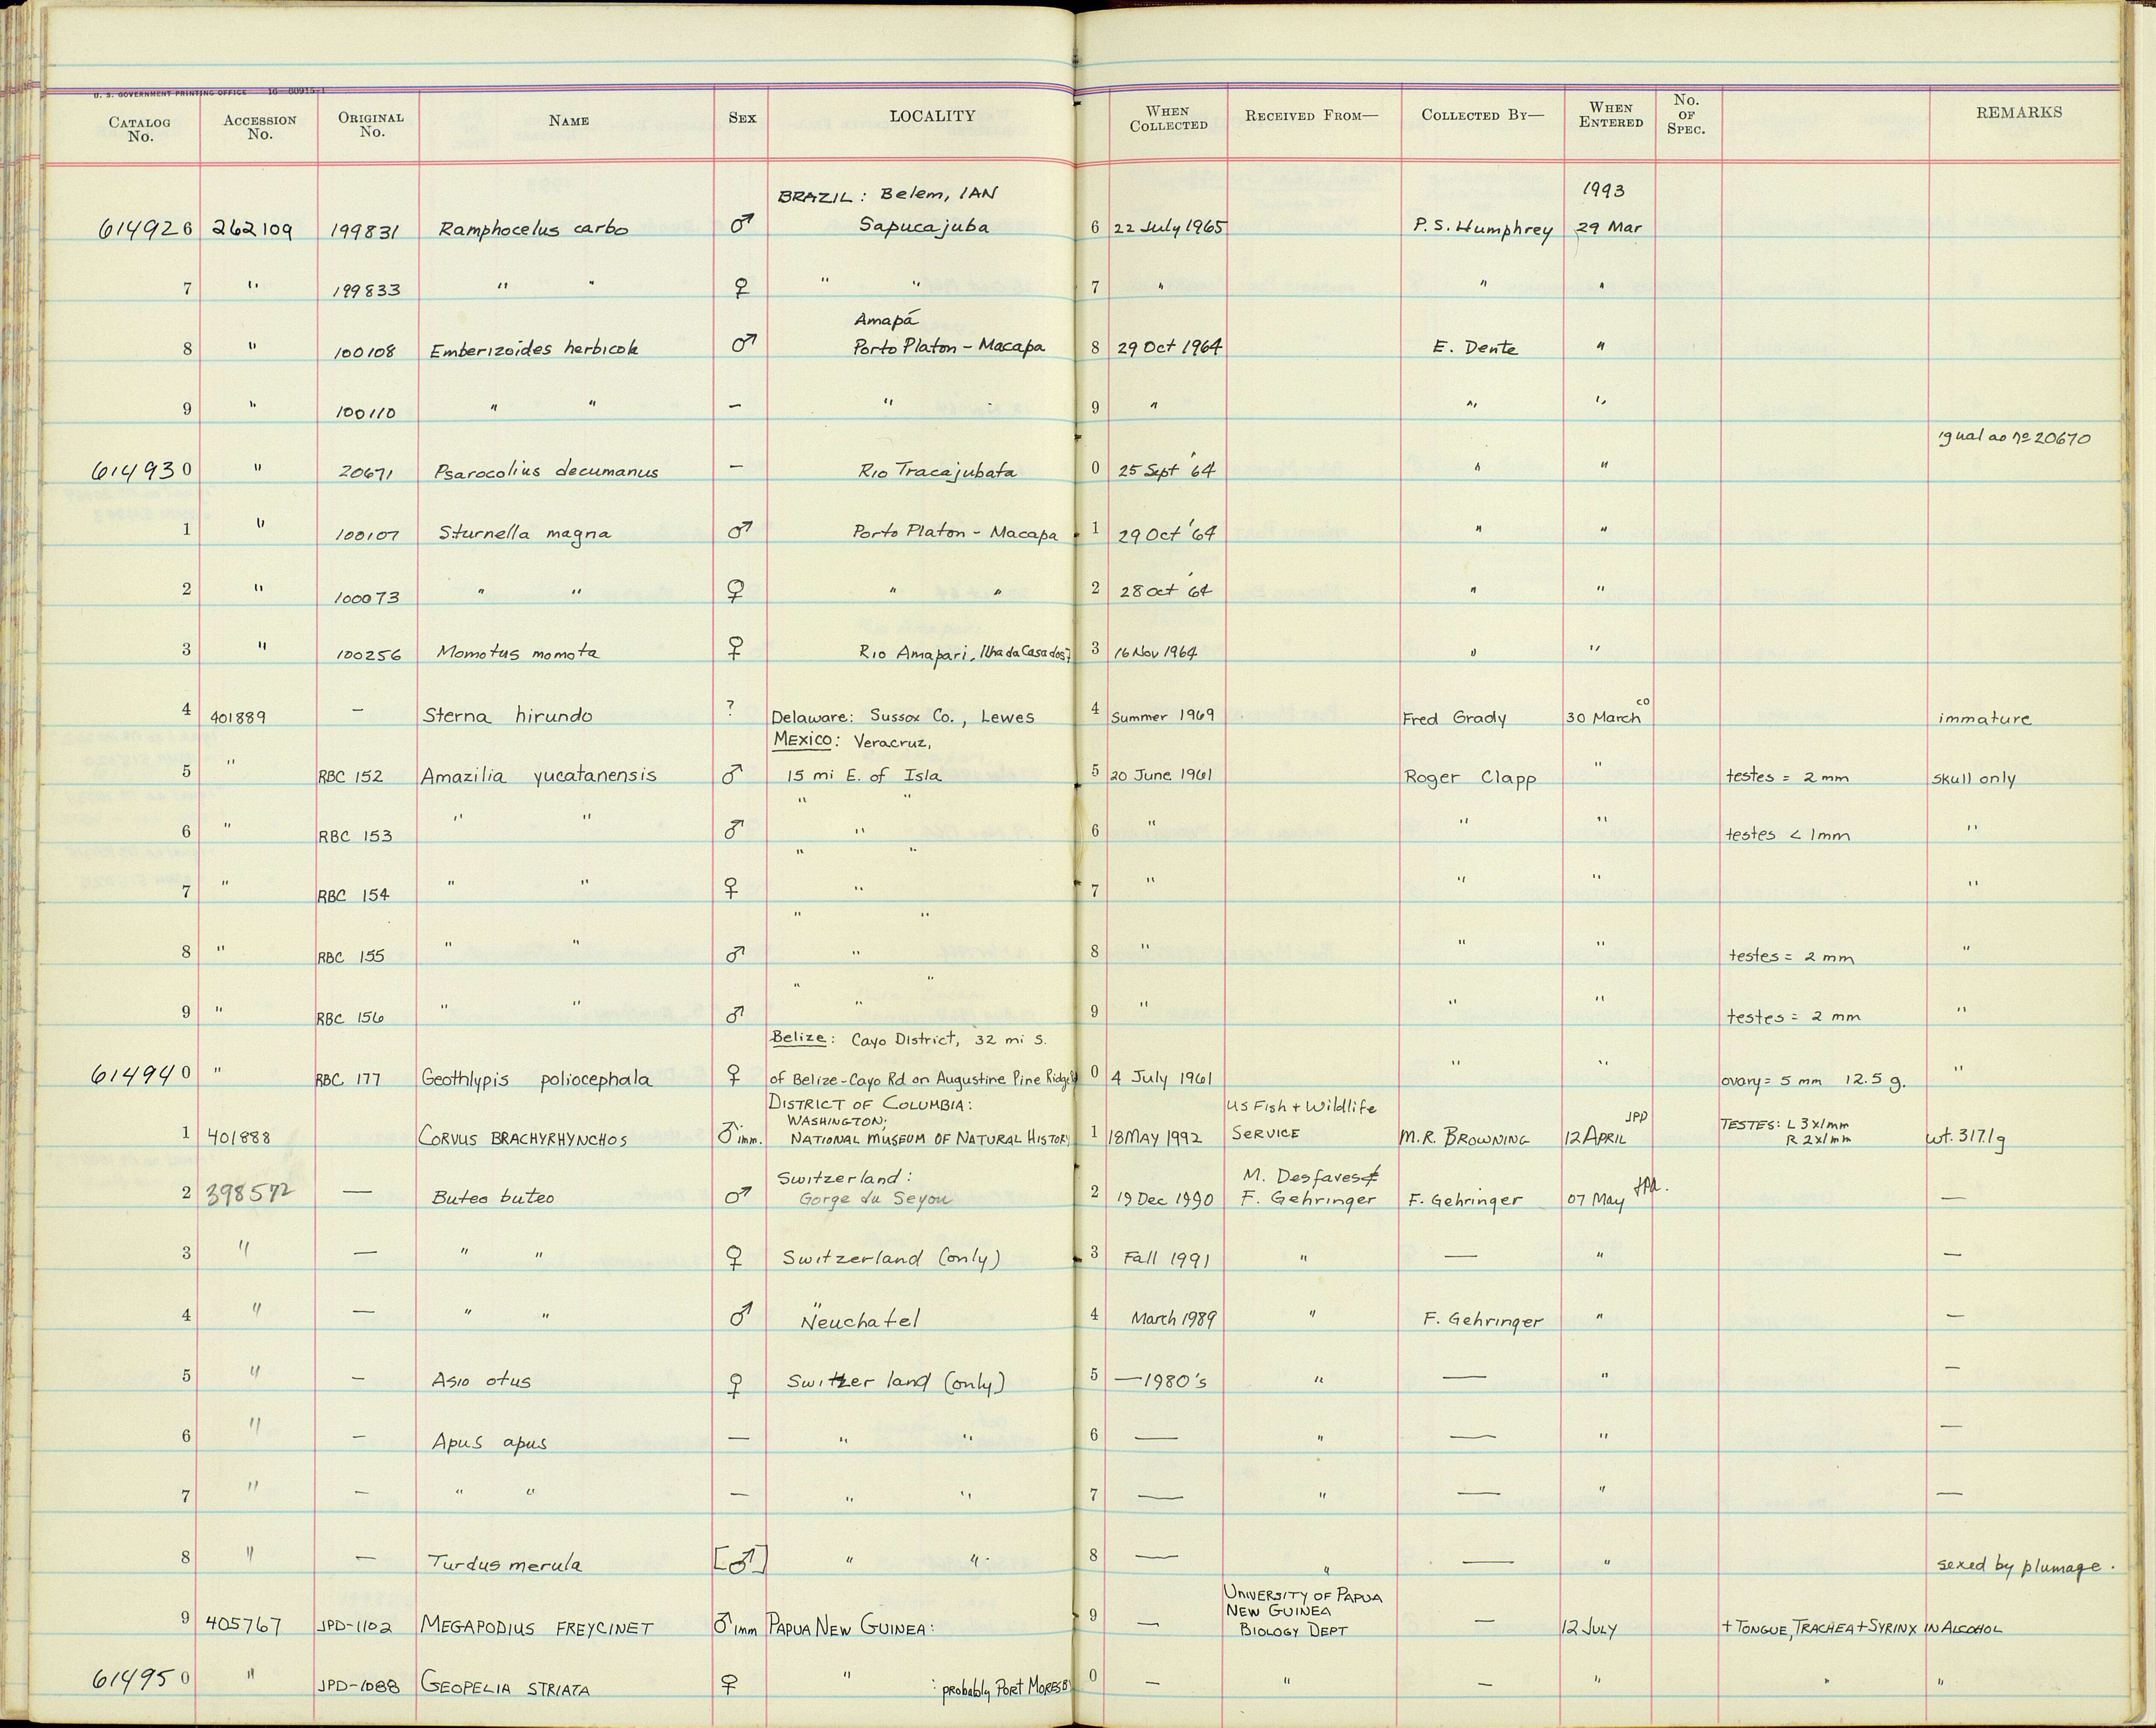 U. S. GOVERNMENT PRINTING OFFICE 16—00915-1
CATALOG No. ACCESSION No. ORIGINAL No. NAME SEX LOCALITY WHEN COLLECTED RECEIVED FROM— COLLECTED BY— WHEN ENTERED No. OF SPEC. REMARKS
BRAZIL: Belem, IAN 1993
614926 262109 199831 Ramphocelus carbo ♂ Sapucajuba 6 22 July 1965 P. S. Humphrey 29 Mar
7 " 199833 " " ♀ " " 7 " " "
Amapá
8 " 100108 Emberizoides herbicola ♂ Porto Platon - Macapa 8 29 Oct 1964 E. Dente "
9 " 100110 " " — " 9 " " "
igual ao nº 20670
614930 " 20671 Psarocolius decumanus — Rio Tracajubata 0 25 Sept '64 " "
1 " 100107 Sturnella magna ♂ Porto Platon - Macapa 1 29 Oct '64 " "
2 " 100073 " " ♀ " " 2 28 Oct '64 " "
3 " 100256 Momotus momota ♀ Rio Amapari, Ilha da Casa dos 3 16 Nov 1964 " "
CO
4 401889 — Sterna hirundo ? Delaware: Sussox Co., Lewes 4 Summer 1969 Fred Grady 30 March immature
MEXICO: Veracruz,
5 " RBC 152 Amazilia yucatanensis ♂ 15 mi E. of Isla 5 20 June 1961 Roger Clapp " testes = 2 mm skull only
" "
6 " RBC 153 " " ♂ " 6 " " " testes < 1mm "
" "
7 " RBC 154 " " ♀ " 7 " " " "
" "
8 " RBC 155 " " ♂ " 8 " " " testes = 2 mm "
" "
9 " RBC 156 " " ♂ " 9 " " " testes = 2 mm "
Belize: Cayo District, 32 mi S.
614940 " RBC 177 Geothlypis poliocephala ♀ of Belize-Cayo Rd on Augustine Pine Ridge Rd 0 4 July 1961 " " ovary = 5 mm 12.5 g. "
DISTRICT OF COLUMBIA: US Fish + Wildlife
WASHINGTON; JPD TESTES: L 3x1mm
1 401888 CORVUS BRACHYRHYNCHOS ♂ imm. NATIONAL MUSEUM OF NATURAL HISTORY 1 18 MAY 1992 SERVICE M.R. BROWNING 12 APRIL R 2x1mm wt. 317.1g
Switzerland: M. Desfayes &
2 398572 — Buteo buteo ♂ Gorge du Seyou 2 19 Dec 1990 F. Gehringer F. Gehringer 07 May —
3 " — " " ♀ Switzerland (only) 3 Fall 1991 " — " —
"
4 " — " " ♂ Neuchatel 4 March 1989 " F. Gehringer " —
5 " — Asio otus ♀ Switzerland (only) 5 —1980's " — " —
6 " — Apus apus — " " 6 — " — " —
7 " — " " — " " 7 — " — " —
8 " — Turdus merula [♂] " " 8 — " — " sexed by plumage.
UNIVERSITY OF PAPUA
NEW GUINEA
9 405767 JPD-1102 MEGAPODIUS FREYCINET ♂ imm PAPUA NEW GUINEA: 9 — BIOLOGY DEPT — 12 JULY + TONGUE, TRACHEA + SYRINX IN ALCOHOL
614950 " JPD-1088 GEOPELIA STRIATA ♀ " : probably PORT MORESBY 0 — " — " " "